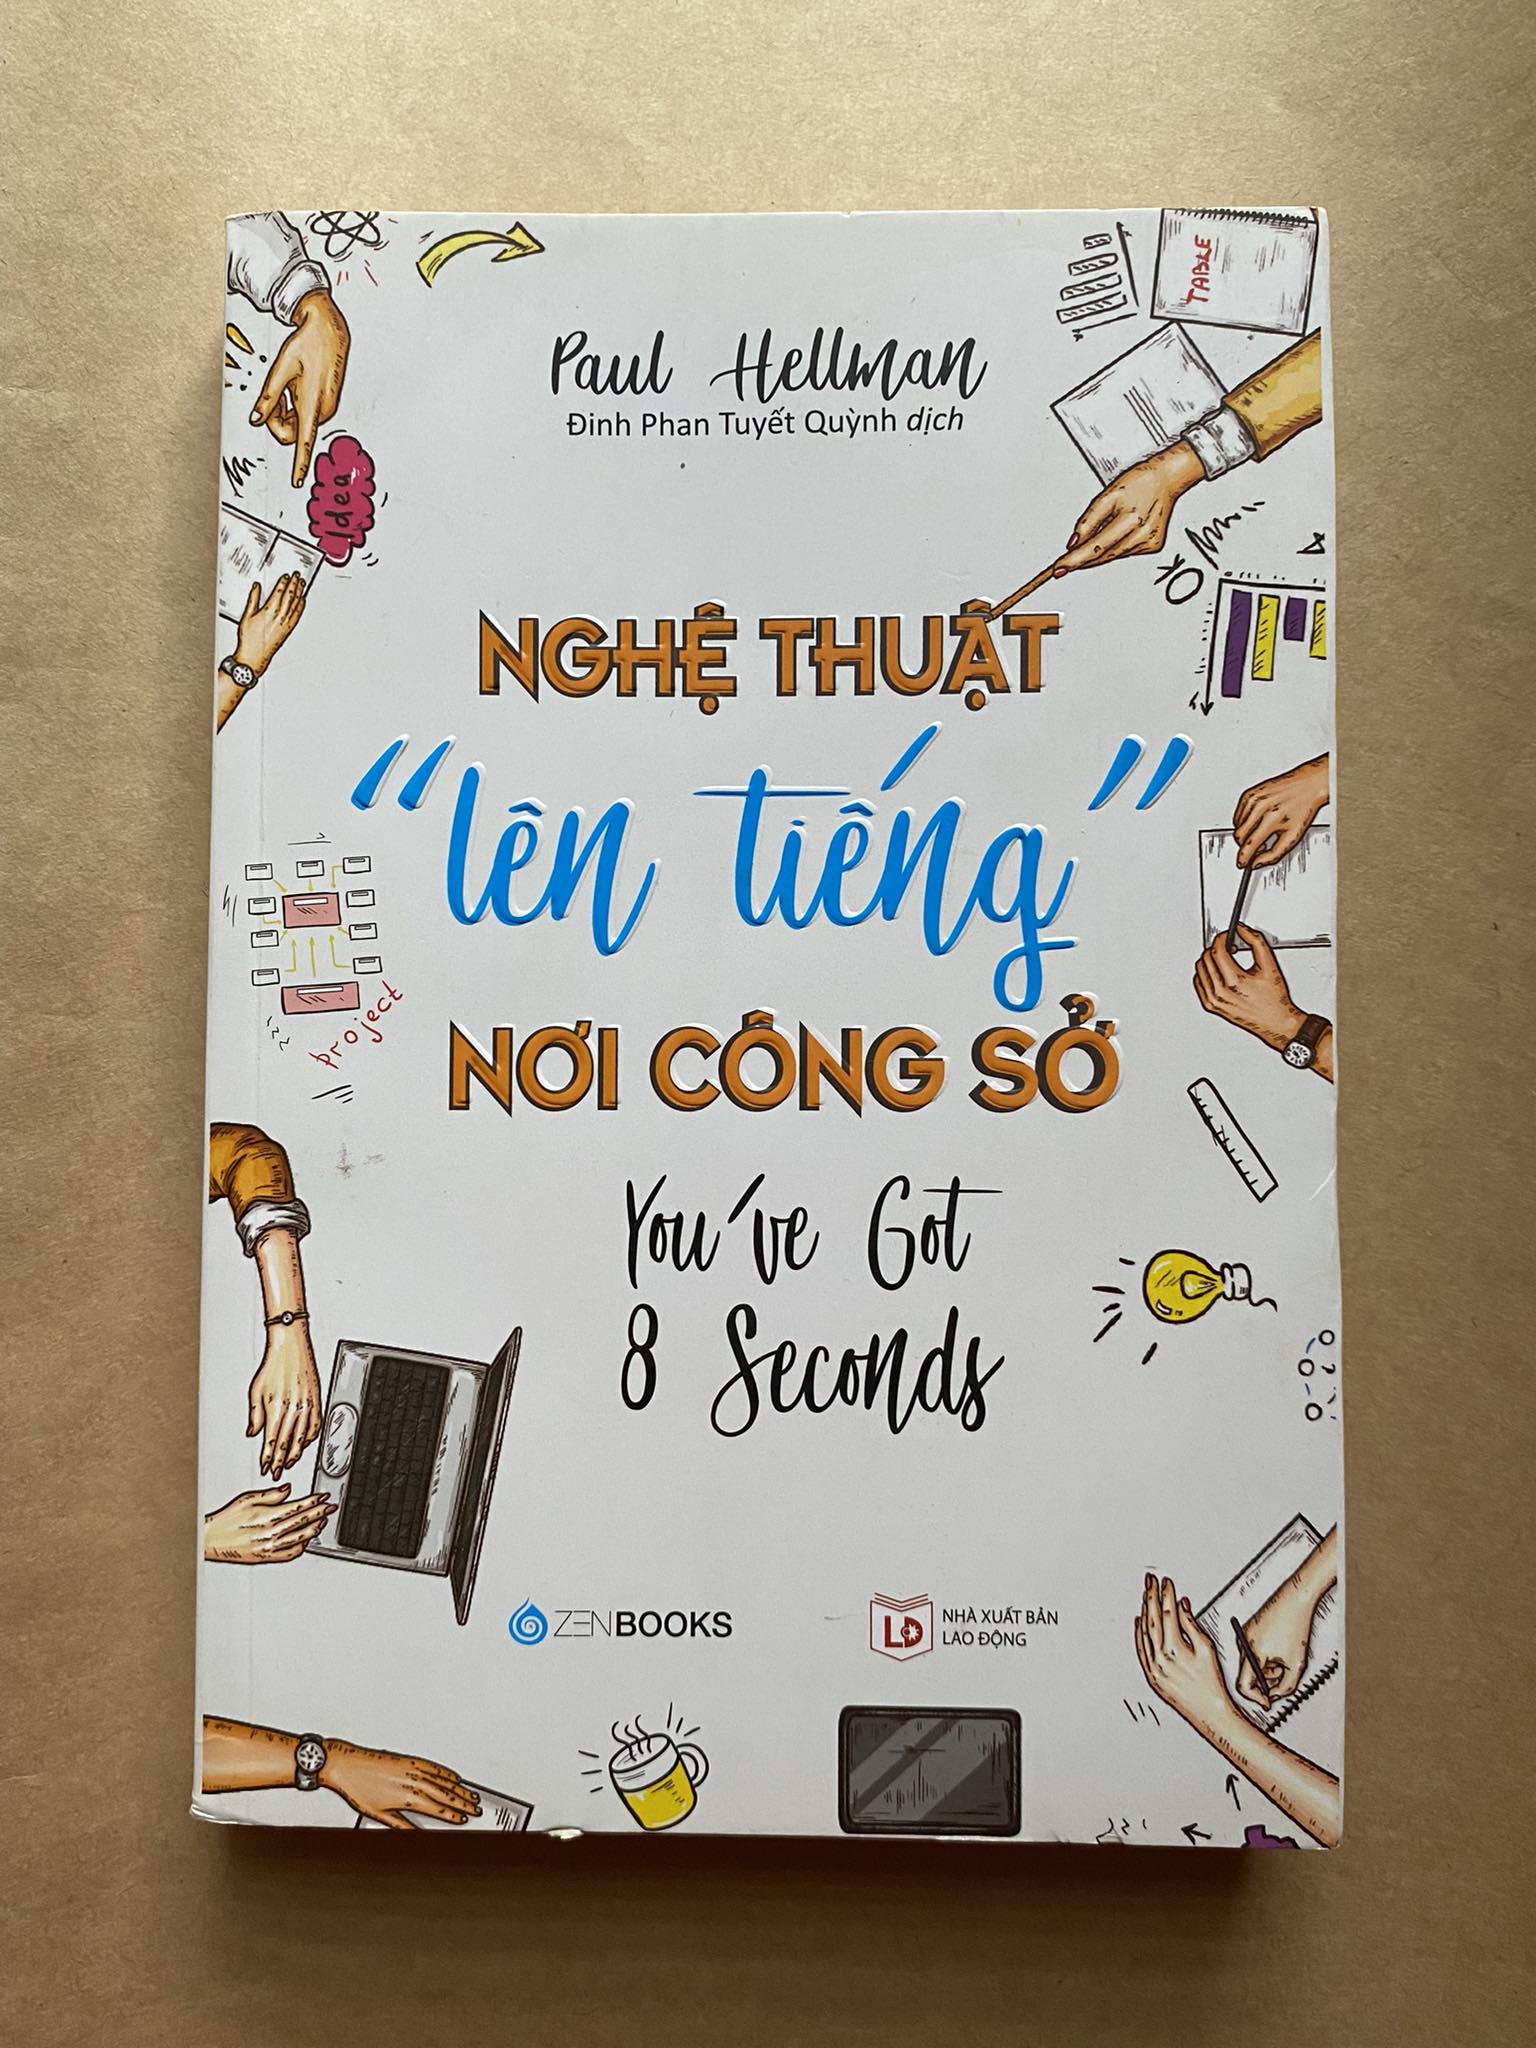 TABLE
Paul Hellman
Đinh Phan Tuyết Quỳnh dịch
Idea
OK
NGHỆ THUẬT
“lên tiếng”
NƠI CÔNG SỞ
project
You've Got
8 Seconds
ZENBOOKS
LĐ
NHÀ XUẤT BẢN
LAO ĐỘNG